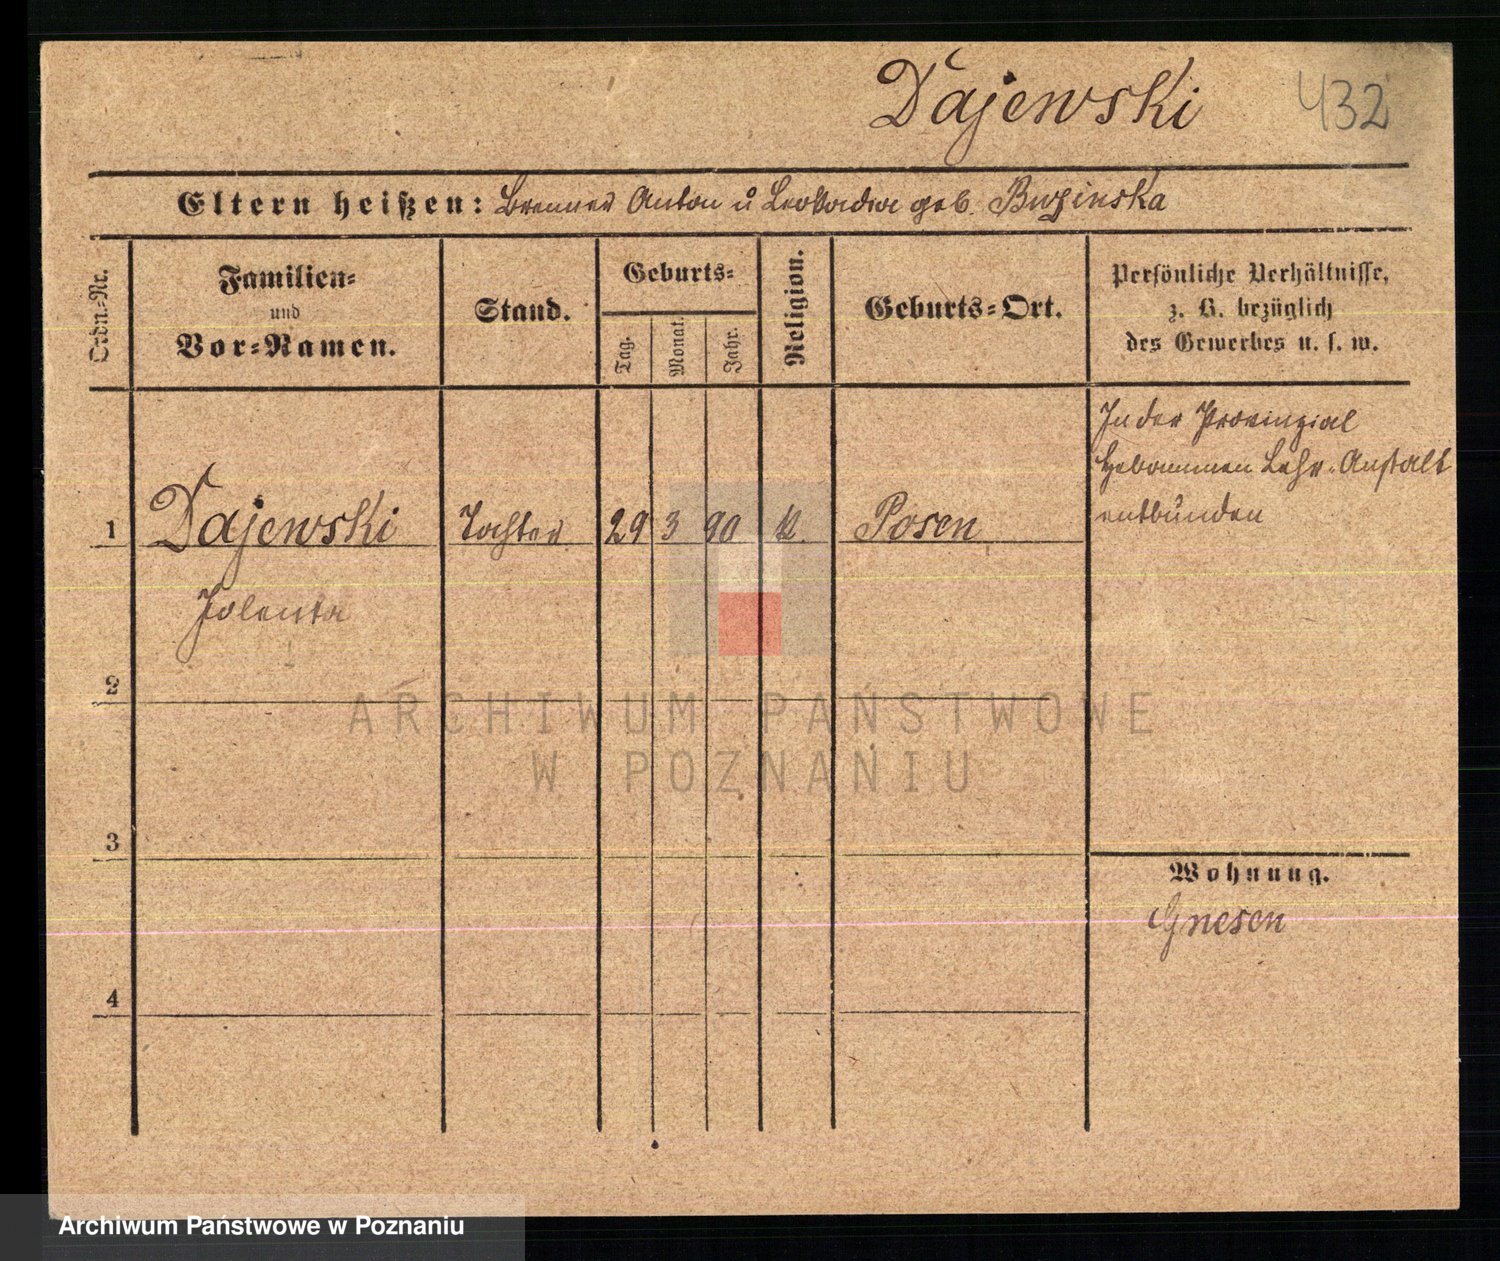 Dajewski 432
Eltern heißen: Brenner Anton u Leokadia geb. Buzinska
Ordn.-Nr.
Familien-
und
Vor-Namen.
Stand.
Geburts-
Tag.
Monat.
Jahr.
Religion.
Geburts-Ort.
Persönliche Verhältnisse,
z. B. bezüglich
des Gewerbes u. s. w.
In der Provinzial
Hebammen Lehr-Anstalt
entbunden
1 Dajewski Tochter 29 3 90 k. Posen
Jolenta
2
ARCHIWUM PAŃSTWOWE
W POZNANIU
3
Wohnung.
Gnesen
4
Archiwum Państwowe w Poznaniu